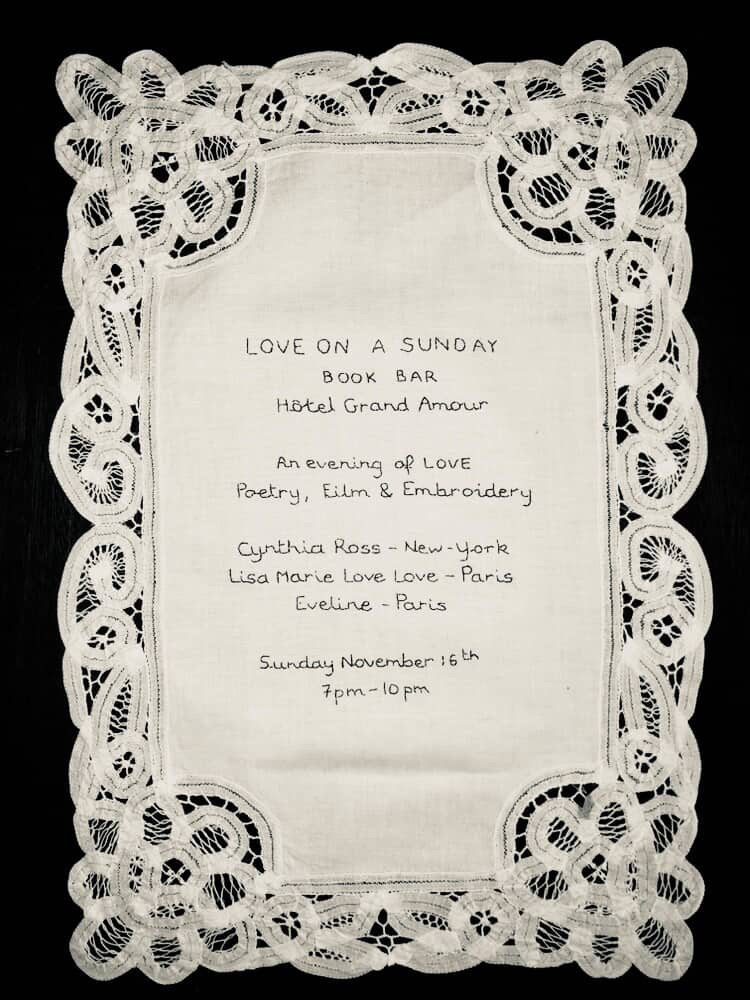 LOVE ON A SUNDAY
BOOK BAR
Hôtel Grand Amour
An evening of LOVE
Poetry, Film & Embroidery
Cynthia Ross - New-York
Lisa Marie Love Love - Paris
Eveline - Paris
Sunday November 16th
7pm - 10pm